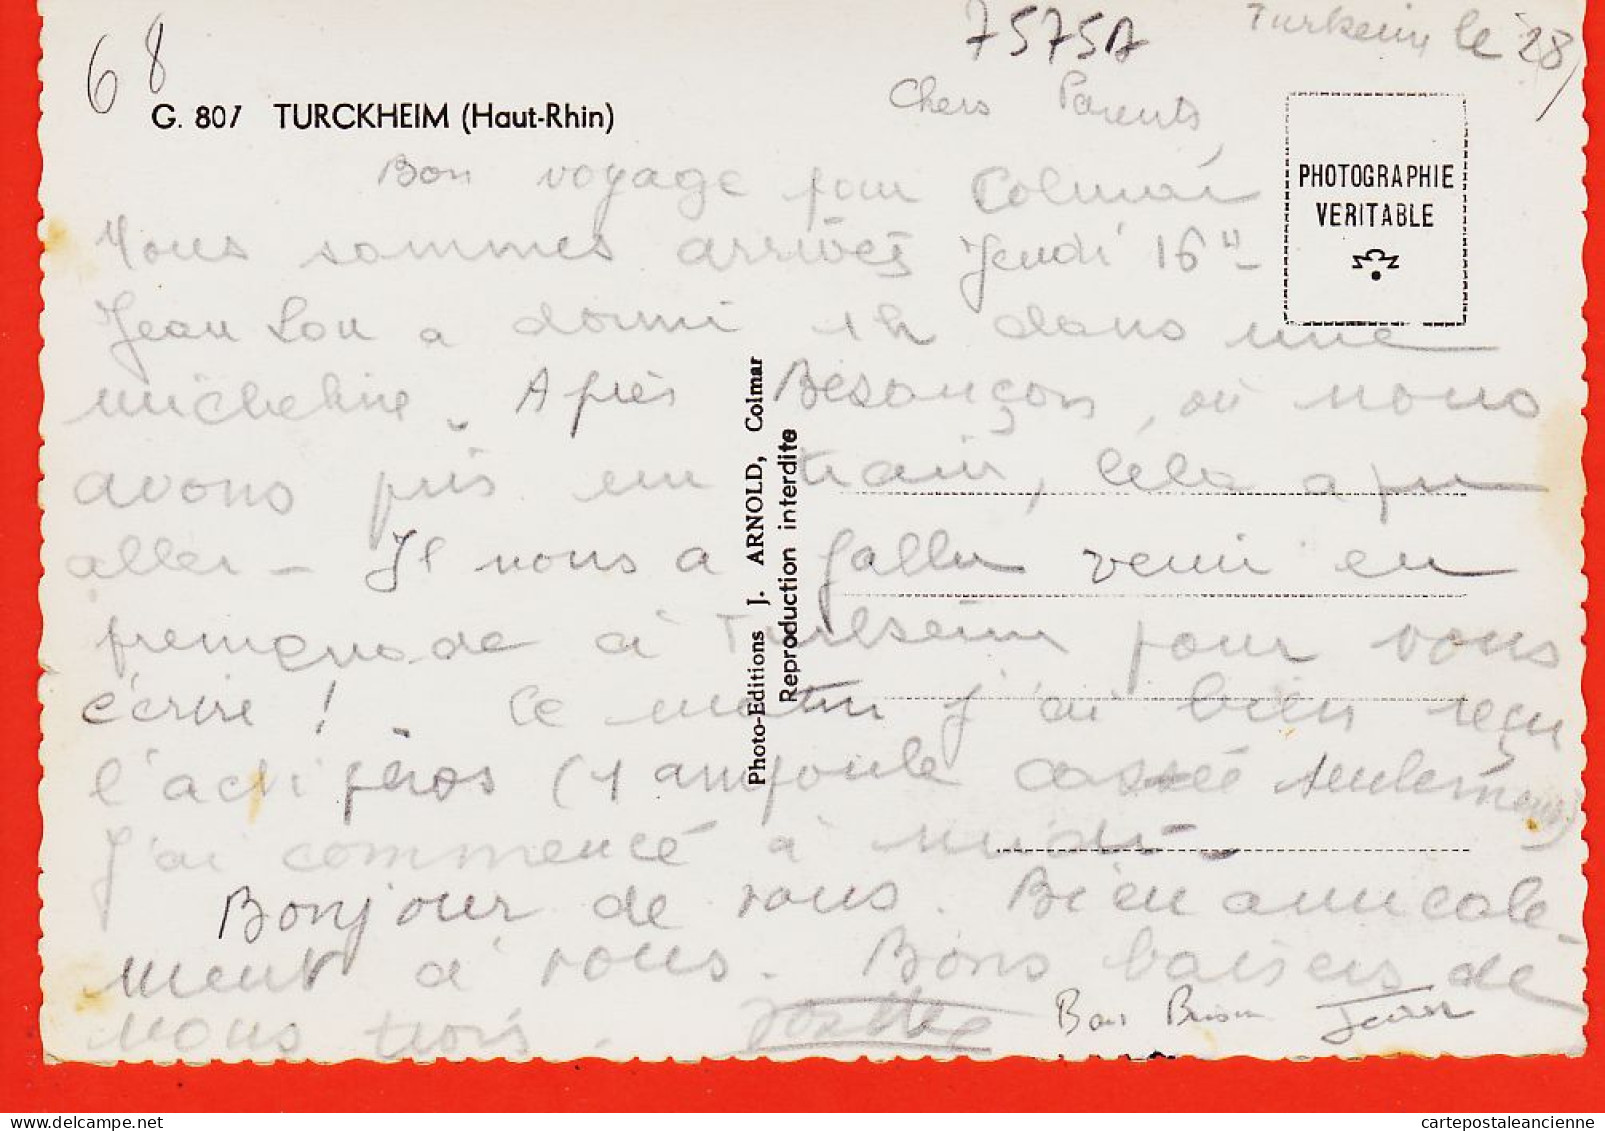 68
7575A
Turkeim le 28/
G. 807 TURCKHEIM (Haut-Rhin)
Chers Parents,
PHOTOGRAPHIE
VERITABLE
Bon voyage pour Colmar
Nous sommes arrivés Jeudi 16H -
Jean Lou a dormi 1h dans une
micheline. Après Besançon, où nous
avons pris un train, cela a pu
aller - Il nous a fallu venir en
promenade à Turkeim pour vous
écrire ! . Ce matin j'ai bien reçu
l'actiphos (1 ampoule cassée seulement)
J'ai commencé à midi -
Bonjour de tous. Bien amicale-
ment à tous. Bons baisers de
nous trois.
Bons Jean
Photo-Editions J. ARNOLD, Colmar
Reproduction interdite
cartepostaleancienne.com